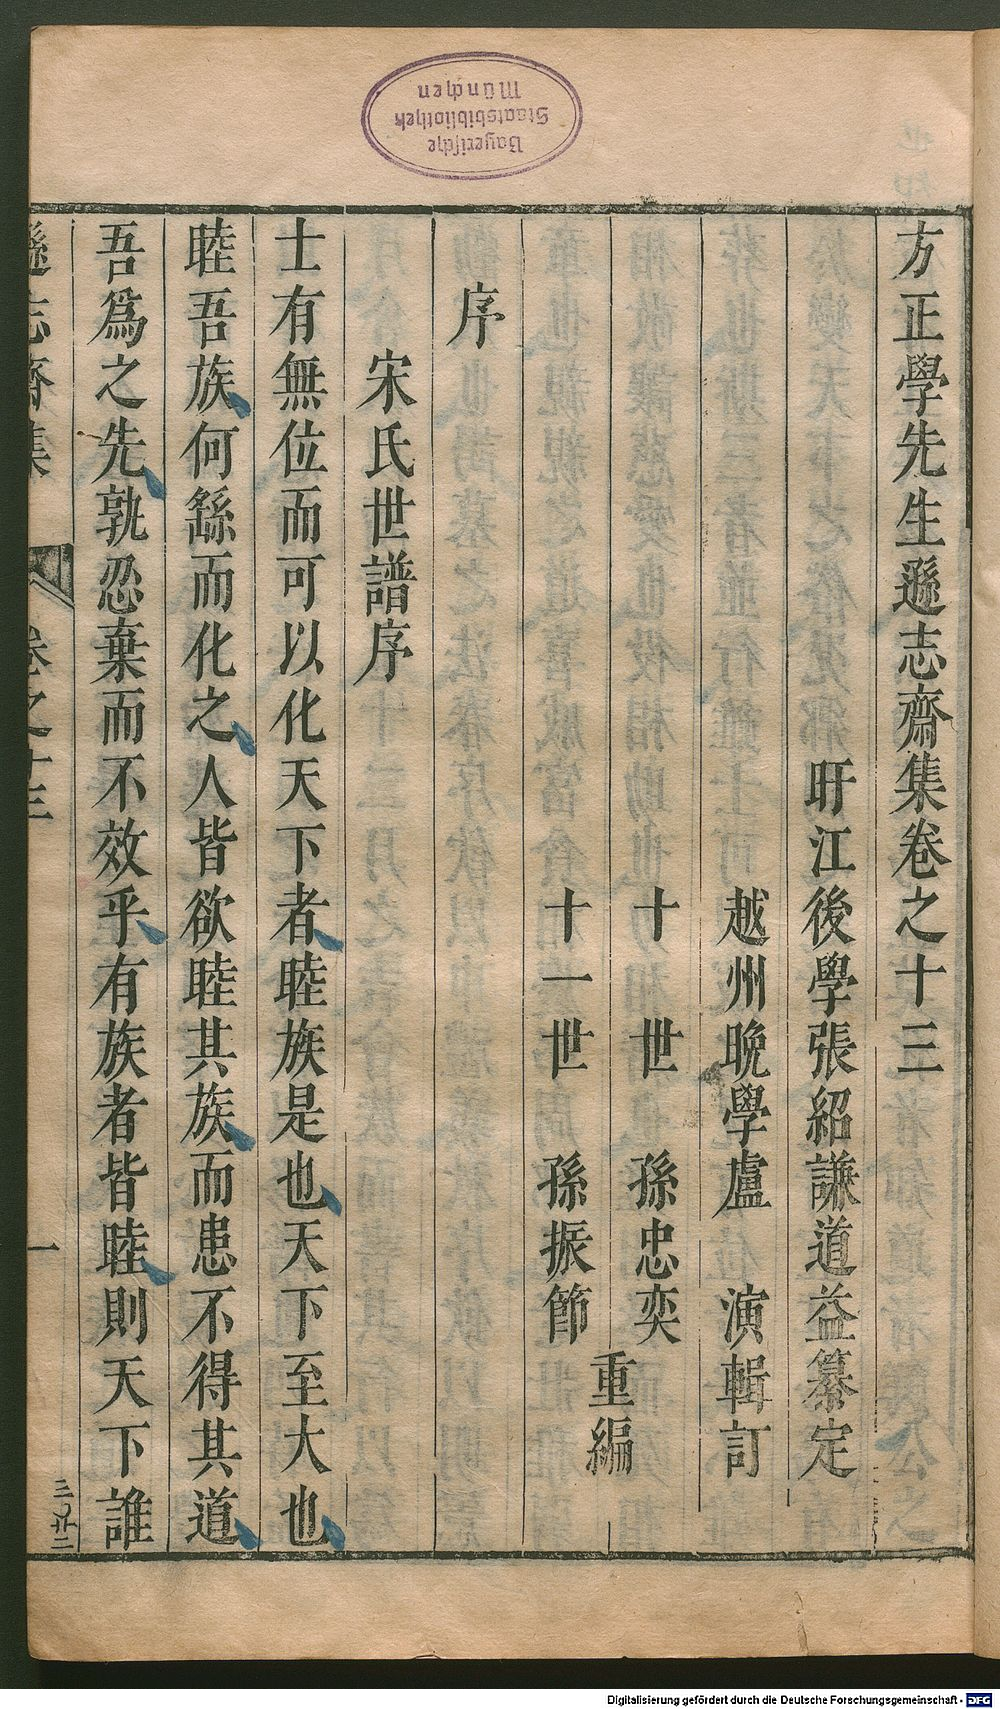 方正學先生遜志齋集卷之十三
旴江後學張紹謙道益纂定
越州晚學盧　演輯訂
十世　孫忠奕
十一世　孫振節
重編
序
宋氏世譜序
士有無位而可以化天下者睦族是也天下至大也
睦吾族何繇而化之人皆欲睦其族而患不得其道
吾爲之先孰忍棄而不效乎有族者皆睦則天下誰
遜志齋集　卷之十三　一
Bayerische
Staatsbibliothek
München
Digitalisierung gefördert durch die Deutsche Forschungsgemeinschaft - DFG